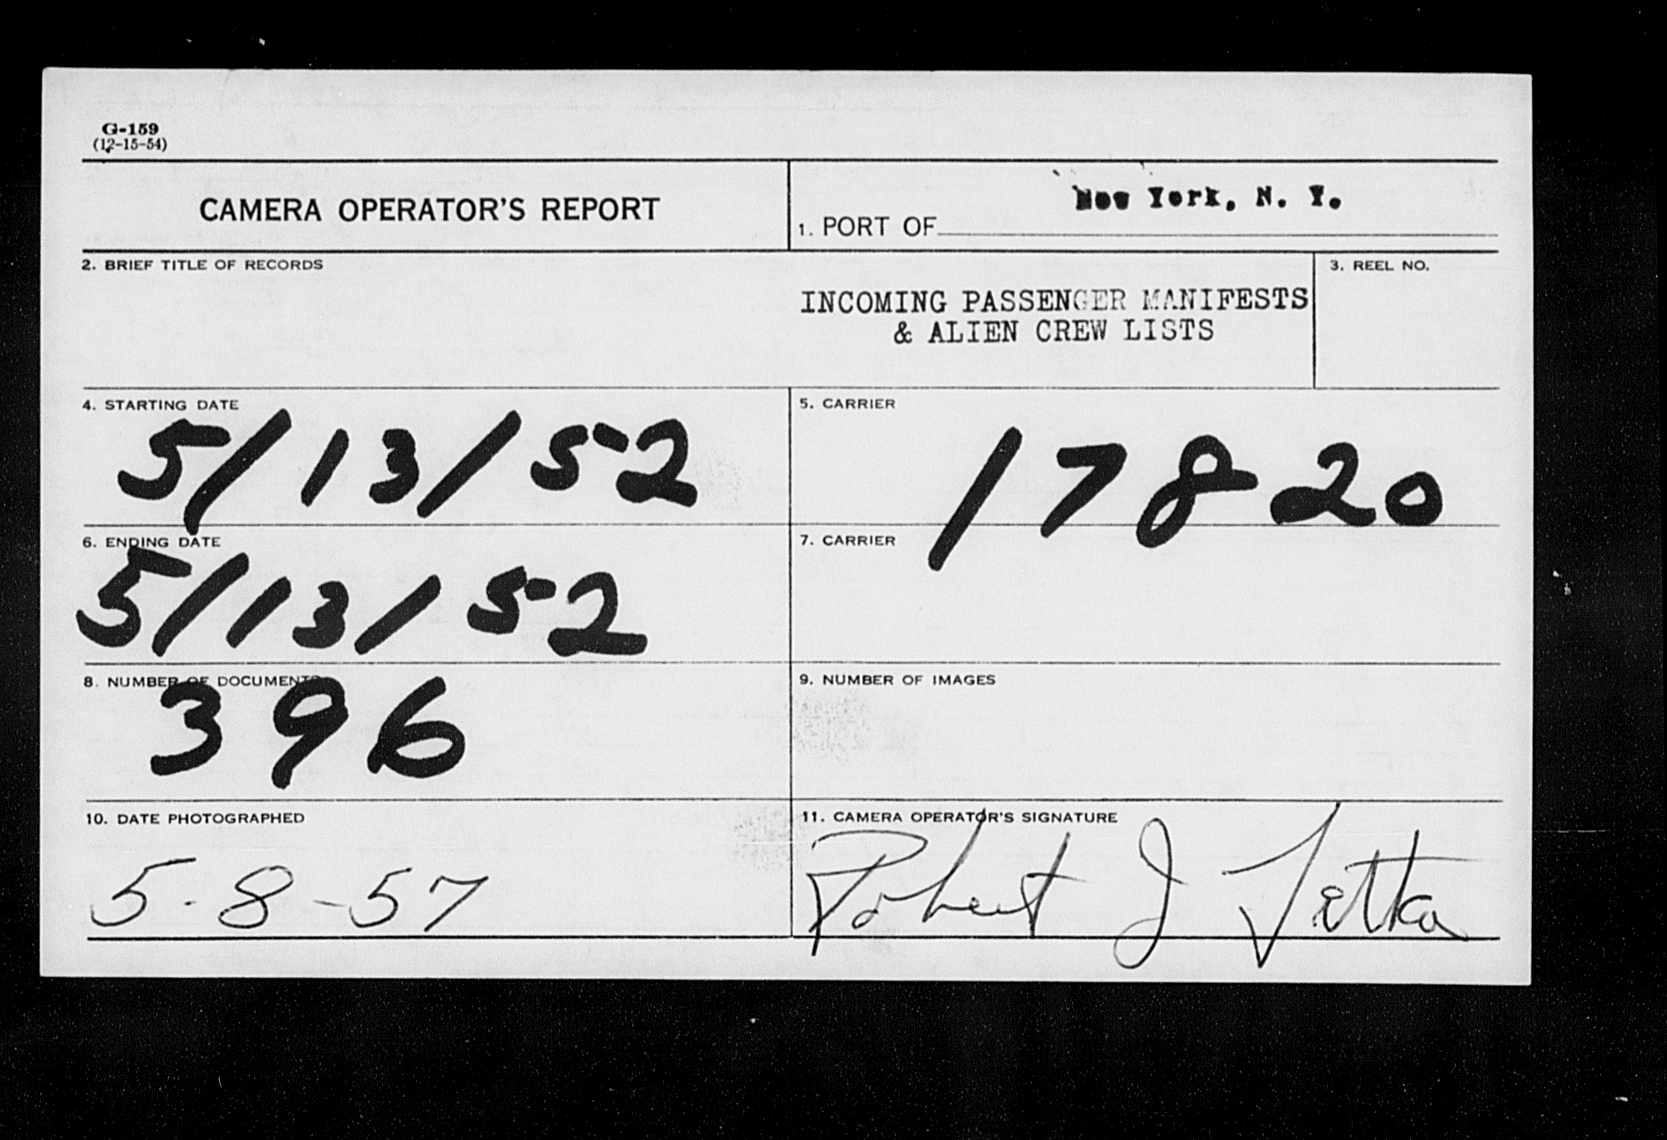 G-159
(12-15-54)
CAMERA OPERATOR'S REPORT
1. PORT OF New York, N. Y.
2. BRIEF TITLE OF RECORDS
INCOMING PASSENGER MANIFESTS
& ALIEN CREW LISTS
3. REEL NO.
4. STARTING DATE
5/13/52
5. CARRIER
17820
6. ENDING DATE
5/13/52
7. CARRIER
8. NUMBER OF DOCUMENTS
396
9. NUMBER OF IMAGES
10. DATE PHOTOGRAPHED
5-8-57
11. CAMERA OPERATOR'S SIGNATURE
Robert J